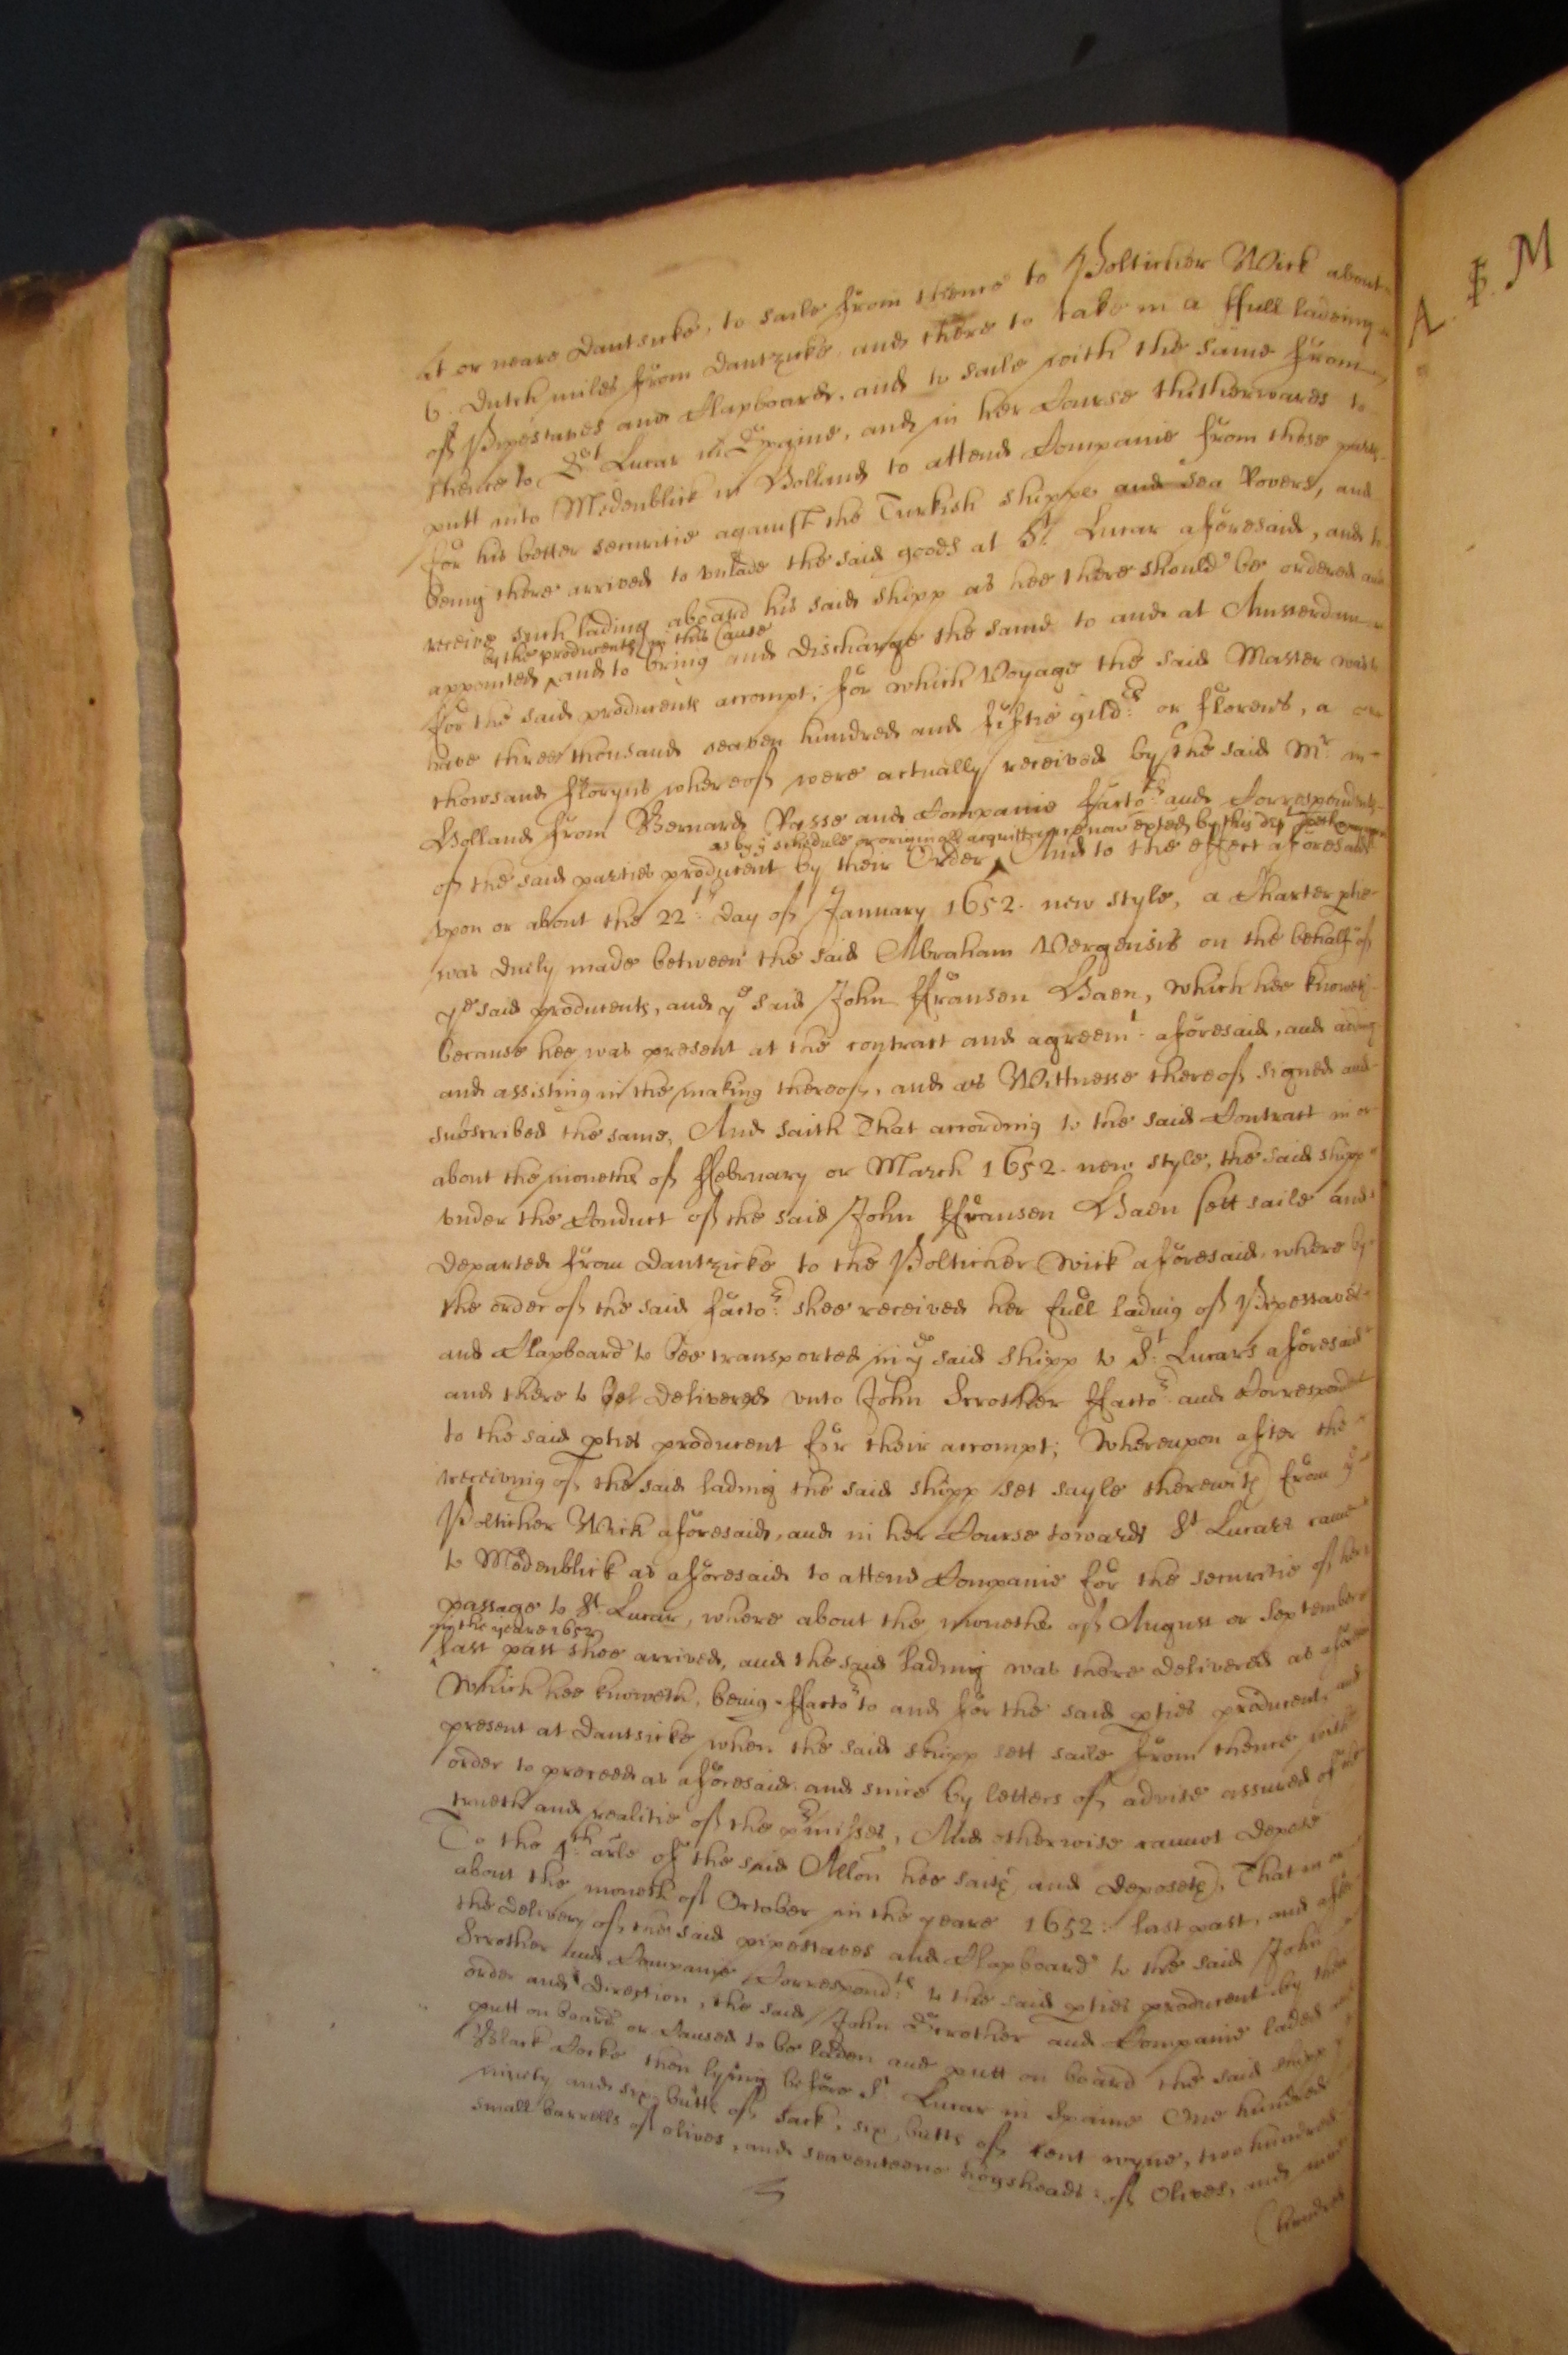 at or neare Dantsicke, to saile from thence to Polticher Wick about
6. Dutch miles from Dantzicke and there to take in a ffull ladeing
of Pipestaves and Clapboard, and to saile with the same from
thence to St Lucar in Spaine, and in her Course thitherwards to
putt into Medenblick in Holland to attend Companie from those parts
for his better securitie against the Turkish shipps and sea Rovers, and
being there arrived to unlade the said goods at St. Lucar aforesaid, and to
receive such lading aboard his said shipp as hee there should be ordered and
by the producents in this Cause
appointed, and to bring and discharge the same to and at Amsterdam
for the said producents accompt; for which Voyage the said Master was to
have three thousand seaven hundred and fiftie gildrs or florens, a
thowsand floryns whereof were actually received by the said Mr. in
Holland from Bernard Passe and Companie factors and Correspondents
as by ye schedule or originall acquittance now exted by this dept
of the said parties producent by their Order, And to the effect aforesaid
upon or about the 22th day of January 1652. new style, a Charter ptie
was duely made betweene the said Abraham Vergensis on the behalf of
ye said producents, and ye said John ffransen Haen, which hee knoweth
because hee was present at the contract and agreemt. aforesaid, and ading
and assisting in the making thereof, and as Wittnesse thereof signed and
subscribed the same, And saith That according to the said Contract in or
about the moneths of ffebruary or March 1652. new style, the said shipp
under the Conduct of the said John ffransen Haen sett saile and
departed from Dantzicke to the Polticher Wick aforesaid, where by
the order of the said factors shee received her full lading of Pipestaves
and Clapboard to bee transported in ye said shipp to St. Lucars aforesaid
and there to be delivered unto John Scrother ffactor and Correspondt
to the said pties producent for their accompt; Whereupon after the
receiving of the said lading the said shipp set sayle therewith from ye
Polticher Wick aforesaid, and in her Course towards St Lucars came
to Medenblick as aforesaid to attend Companie for the securitie of her
passage to St Lucar, where about the moneths of August or September
in the yeare 1652
last past shee arrived, and the said lading was there delivered as aforesaid
Which hee knoweth, being ffactor to and for the said pties producent, and
present at Dantsicke when the said shipp sett saile from thence with
order to proceed as aforesaid, and since by letters of advise assured of the
trueth and realitie of the pmisses, And otherwise cannot depose
To the 4th. arle of the said Allon hee saith and deposeth, That in or
about the moneth of October in the yeare 1652: last past, and after
the delivery of the said pipestaves and Clapboard to the said John
Scrother and Companye Correspondts to the said pties producent by their
order and direction, the said John Scrother and Companie laded and
putt on board or Caused to be laden and putt on board the said shipp
Black Cocke then lying before St. Lucar in Spaine One hundred
ninety and six butts of Sack, six butts of tent wyne, two hundred
small barrells of olives, and seaventeene hogsheads of Olives, and
hundred
A. B. M